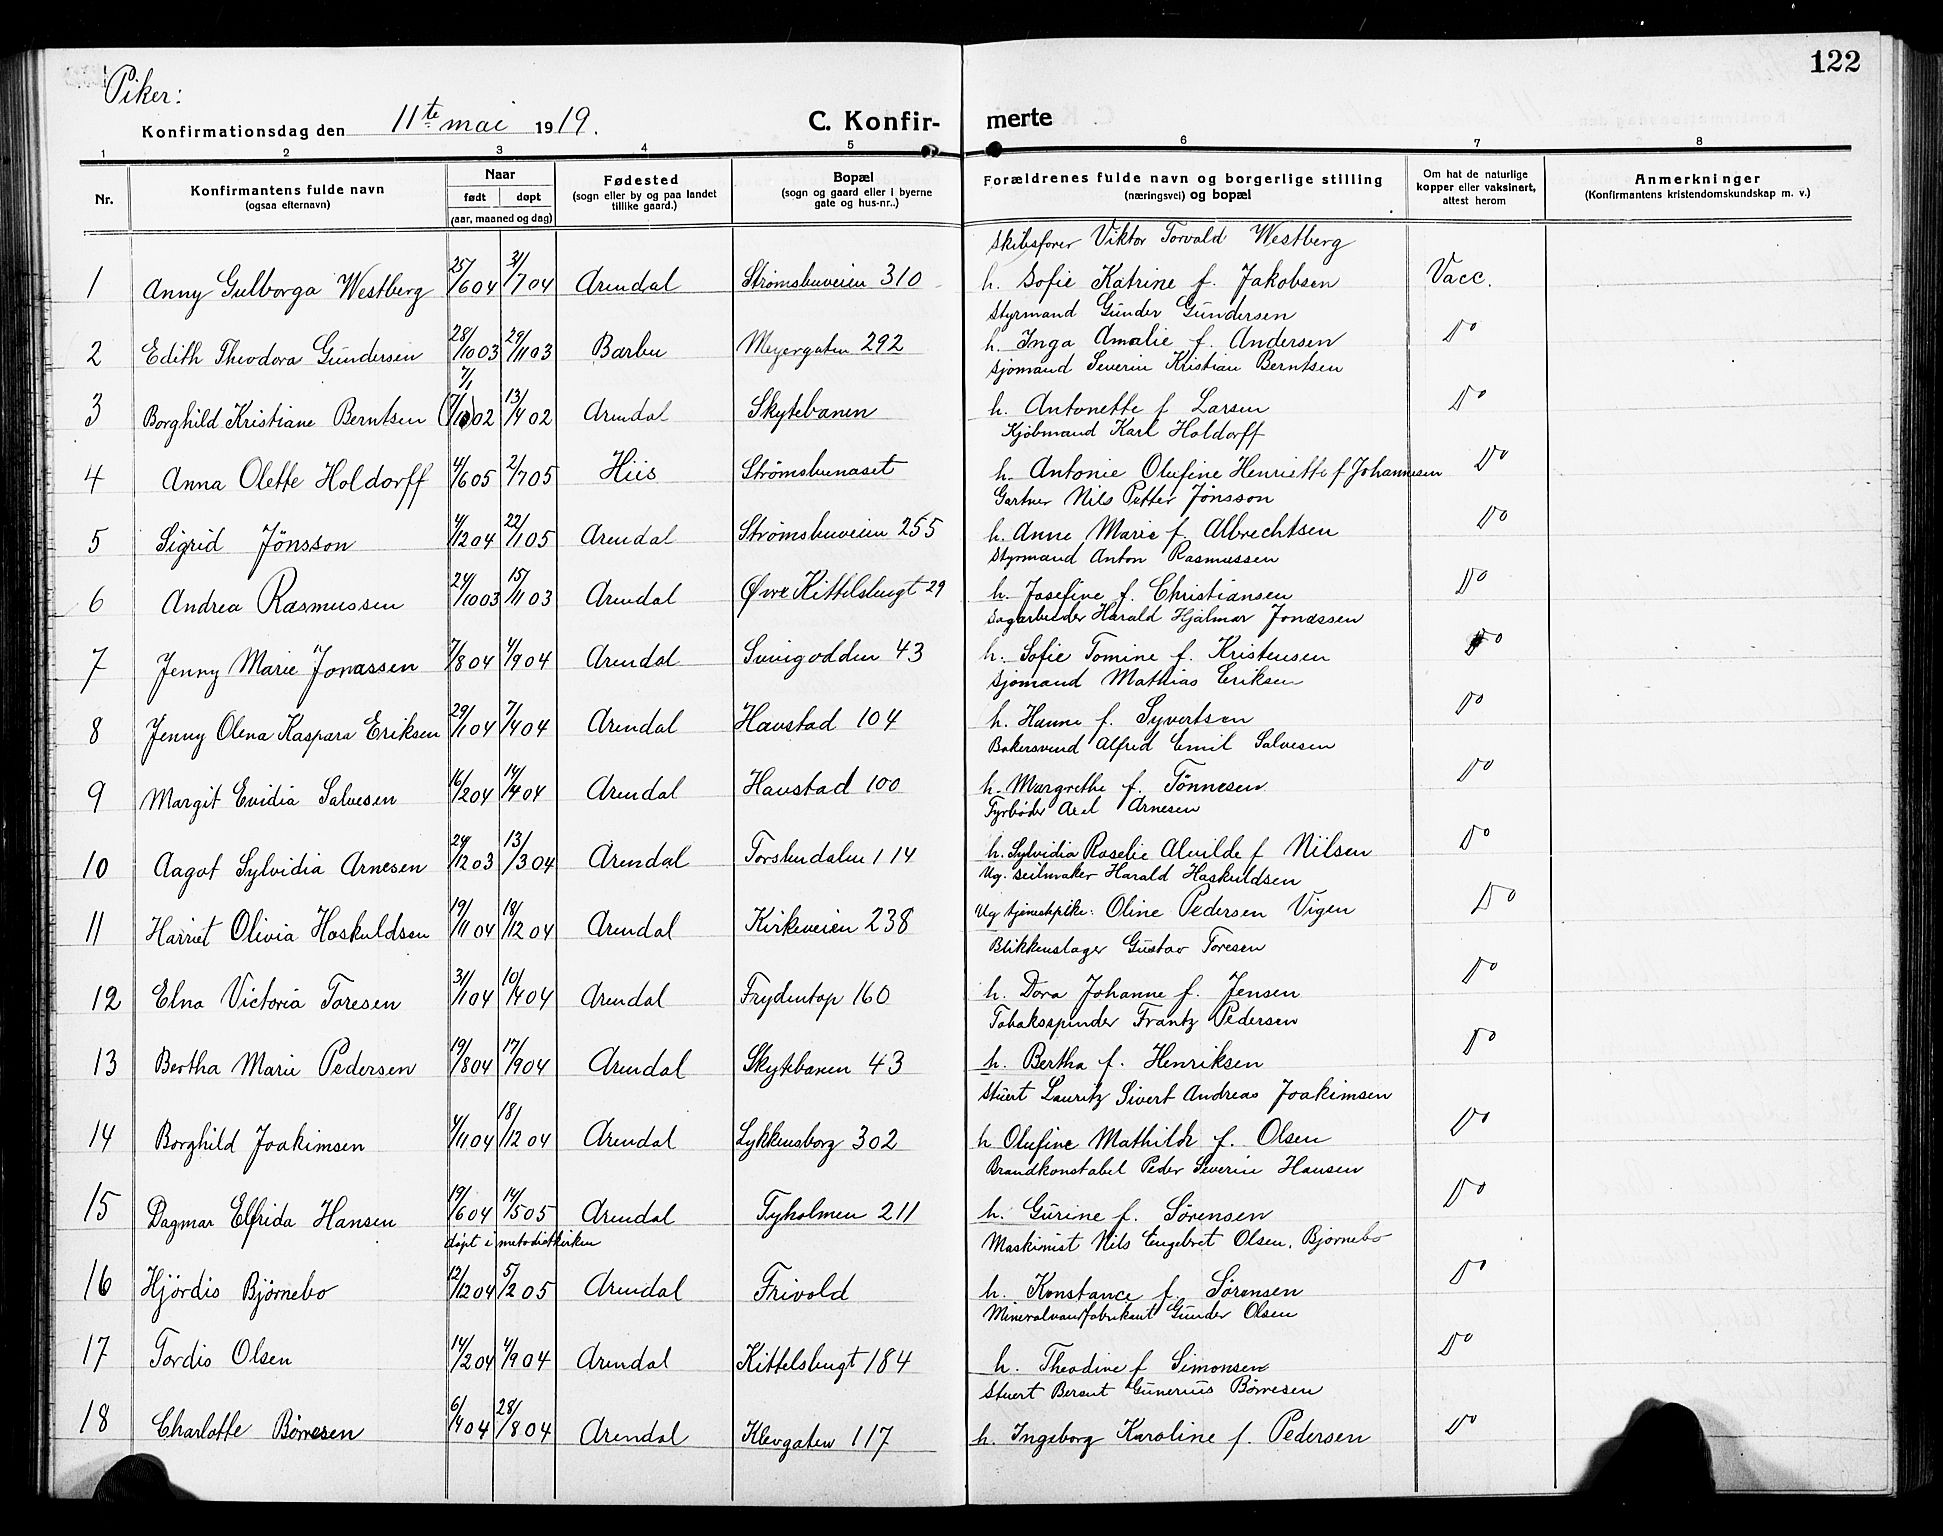 122
Piker:
Konfirmationsdag den 11te mai 1919.
C. Konfir- merte
1 2 3 4 5 6 7 8
Nr.
Konfirmantens fulde navn
(ogsaa efternavn)
Naar
født døpt
(aar, maaned og dag)
Fødested
(sogn eller by og paa landet
tillike gaard.)
Bopæl
(sogn og gaard eller i byerne
gate og hus-nr..)
Forældrenes fulde navn og borgerlige stilling
(næringsvei) og bopæl
Om hat de naturlige
kopper eller vaksinert,
attest herom
Anmerkninger
(Konfirmantens kristendomskundskap m. v.)
Skibsfører Viktor Torvald Westberg
1 Anny Gulborga Westberg 25/6 04 31/7 04 Arendal Strømsbuveien 310 h. Sofie Katrine f. Jakobsen Vacc.
Styrmand Gunder Gundersen
2 Edith Theodora Gundersen 28/10 03 29/11 03 Barbu Meyergaten 292 h. Inga Amalie f. Andersen Do
Sjømand Severin Kristian Berntsen
7/1
3 Borghild Kristiane Berntsen 02 13/4 02 Arendal Skytebanen h. Antonette f. Larsen Do
Kjøbmand Karl Holdorff
4 Anna Olette Holdorff 4/6 05 2/7 05 Hiis Strømsbunaset h. Antonie Olufine Henriette f. Johannesen Do
Gartner Nils Petter Jönsson
5 Sigrid Jönsson 4/12 04 22/1 05 Arendal Strømsbuveien 255 h. Anne Marie f. Albrechtsen Do
Styrmand Anton Rasmussen
6 Andrea Rasmussen 24/10 03 15/11 03 Arendal Øvre Kittelsbugt 29 h. Josefine f. Christiansen Do
Sagarbeider Harald Hjalmar Jonassen
7 Jenny Marie Jonassen 7/8 04 4/9 04 Arendal Suvigodden 43 h. Sofie Tomine f. Kristensen Do
Sjømand Mathias Eriksen
8 Jenny Olena Kaspara Eriksen 29/1 04 7/4 04 Arendal Havstad 104 h. Hanne f. Syvertsen Do
Bakersvend Alfred Emil Salvesen
9 Margit Evidia Salvesen 16/2 04 14/4 04 Arendal Havstad 100 h. Margrethe f. Tönnesen Do
Fyrbøder Axel Arnesen
10 Aagot Sylvidia Arnesen 24/12 03 13/3 04 Arendal Torskedalen 114 h. Sylvidia Roselie Alvilde f. Nilsen Do
Ug. seilmaker Harald Haskuldsen
11 Harriet Olivia Haskuldsen 19/11 04 18/12 04 Arendal Kirkeveien 238 Ug tjenestpike: Oline Pedersen Vigen Do
Blikkenslager Gustav Toresen
12 Elna Victoria Toresen 31/1 04 10/4 04 Arendal Frydentop 160 h. Dora Johanne f. Jensen Do
Tobakspinder Frantz Pedersen
13 Bertha Marie Pedersen 19/8 04 17/9 04 Arendal Skytebanen 43 h. Bertha f. Henriksen Do
Stuert Lauritz Sivert Andreas Joakimsen
14 Borghild Joakimsen 4/11 04 18/12 04 Arendal Lykkensborg 302 h. Olufine Mathilde f. Olsen Do
Brandkonstabel Peder Severin Hansen
15 Dagmar Elfrida Hansen 19/6 04 14/5 05 Arendal Tyholmen 211 h. Gurine f. Sørensen Do
døpt i metodistkirken
Maskinist Nils Engebret Olsen, Bjørnebo
16 Hjördis Bjørnebo 12/12 04 5/2 05 Arendal Frivold h. Konstance f. Sørensen Do
Mineralvandfabrikant Gunder Olsen
17 Tordis Olsen 14/2 04 4/9 04 Arendal Kittelsbugt 184 h. Theodine f. Simonsen Do
Stuert Berent Gunerius Børresen
18 Charlotte Børresen 6/4 04 28/8 04 Arendal Klevgaten 117 h. Ingeborg Karoline f. Pedersen Do